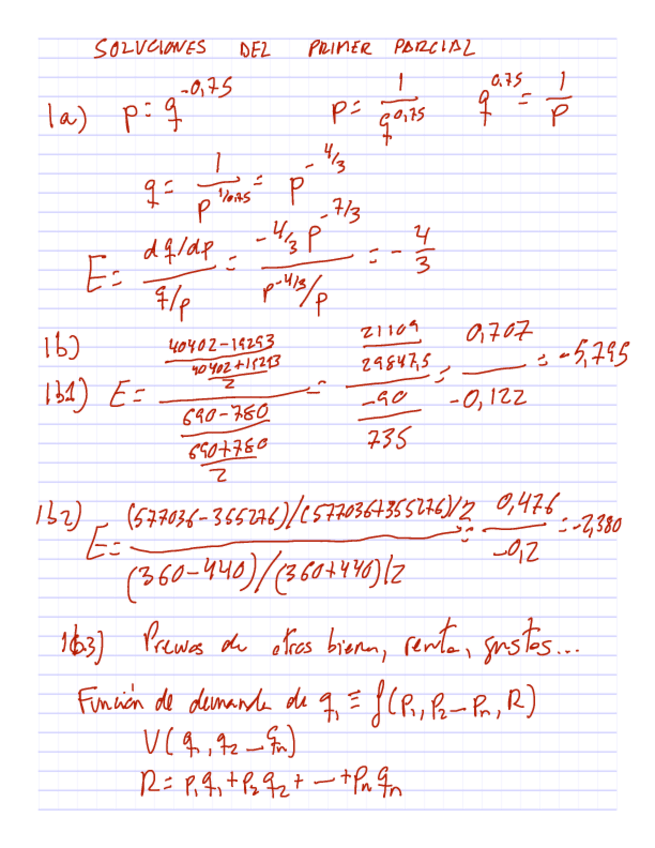 SOLUCIONES DEL PRIMER PARCIAL
1a) p = q^-0,75 p = 1/q^0,75 q^0,75 = 1/p
q = 1/p^1/0.75 = p^-4/3
E = (dq/dp)/(q/p) = (-4/3 p^-7/3)/(p^-4/3/p) = -4/3
1b)
1b1) E = ((40402-19293)/((40402+19293)/2))/((690-780)/((690+780)/2)) = (21109/29847,5)/(-90/735) = 0,707/-0,122 = -5,795
1b2) E = ((577036-355276)/(577036+355276)/2)/((360-440)/(360+440)/2) = 0,476/-0,2 = -2,380
1b3) Precios de otros bienes, renta, gustos...
Función de demanda de q1 ≡ f(P1, P2 - Pn, R)
U(q1, q2 - qn)
R = P1q1 + P2q2 + - + Pnqn